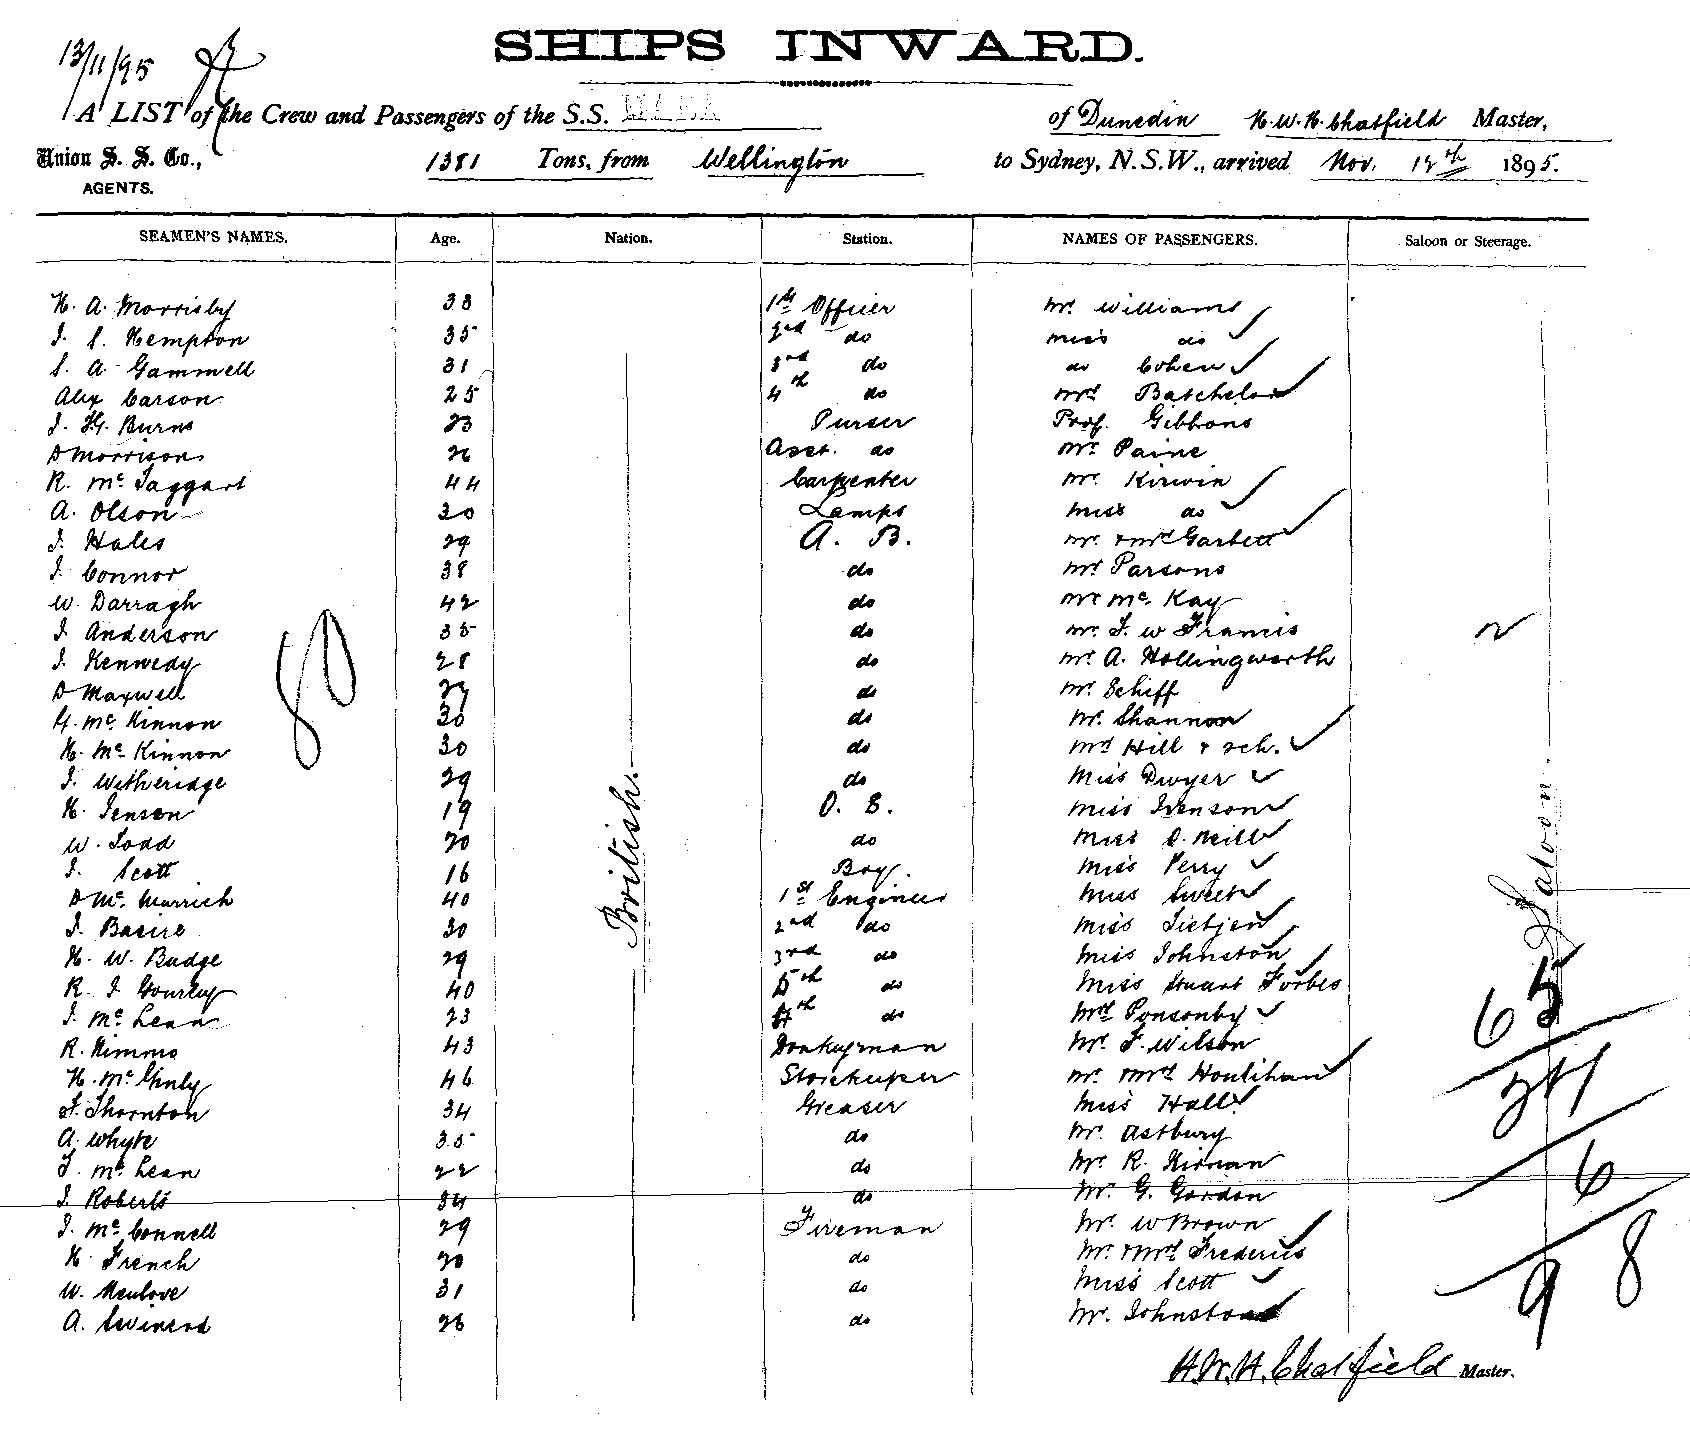 13/11/95
SHIPS INWARD.
A LIST of the Crew and Passengers of the S.S. of Dunedin H. W. H. Chatfield Master,
Union S. S. Co., AGENTS. 1381 Tons, from Wellington to Sydney, N.S.W., arrived Nov. 12th 1895.
SEAMEN'S NAMES. Age. Nation. Station. NAMES OF PASSENGERS. Saloon or Steerage.
H. A. Morrisby 38 1st Officer Mr. Williams
J. S. Hempton 35 2nd do Miss do
S. A. Gammell 31 3rd do do Cohen
Alex Carson 25 4th do Mrs Batchelor
J. H. Burns 23 Purser Prof. Gibbons
D Morrison 26 Asst. do Mr Paine
R. McTaggart 44 Carpenter Mr. Kirwin
A. Olson 30 Lamps Miss do
J. Hales 29 A. B. Mr. & Mrs Garbett
J. Connor 38 do Mr Parsons
W. Darragh 42 do Mr McKay
J. Anderson 35 do Mr. J. W Francis
J. Kennedy 28 do Mr. A. Hollingworth
D Maxwell 27 do Mr. Schiff
McKinnon 30 do Mr. Shannon
H. McKinnon 30 do Mrs Hill & 2ch.
J. Witheridge 29 do Miss Dwyer
H. Jensen 19 O. S. Miss Ivenson
W. Todd 20 do Miss O. Neill
J. Scott 16 Boy. Miss Perry
D Mc. Murrich 40 1st Engineer Miss Sweet
J. Basire 30 2nd do Miss Tietjen
H. W. Budge 29 3rd do Miss Johnston
R. J Gourley 40 do Miss Stuart Forbes
J. McLean 23 do Mrs Ponsonby
R. Nimmo 43 Donkeyman Mr. F. Wilson
H. McGinly 46 Storekeeper Mr. Mrs Houlihan
F. Thornton 34 Greaser Miss Hall
A. Whyte 35 do Mr. Astbury
J. McLean 22 do Mr R. Kirwan
J. Roberts 34 do Mr. G. Gordon
J. McConnell 29 Fireman Mr. W Brown
H. French 20 do Mr. Mrs Frederics
W. 31 do Miss Scott
A. 26 do Mr. Johnston
British.
Saloon.
65
6
98
H. W. H. Chatfield Master.